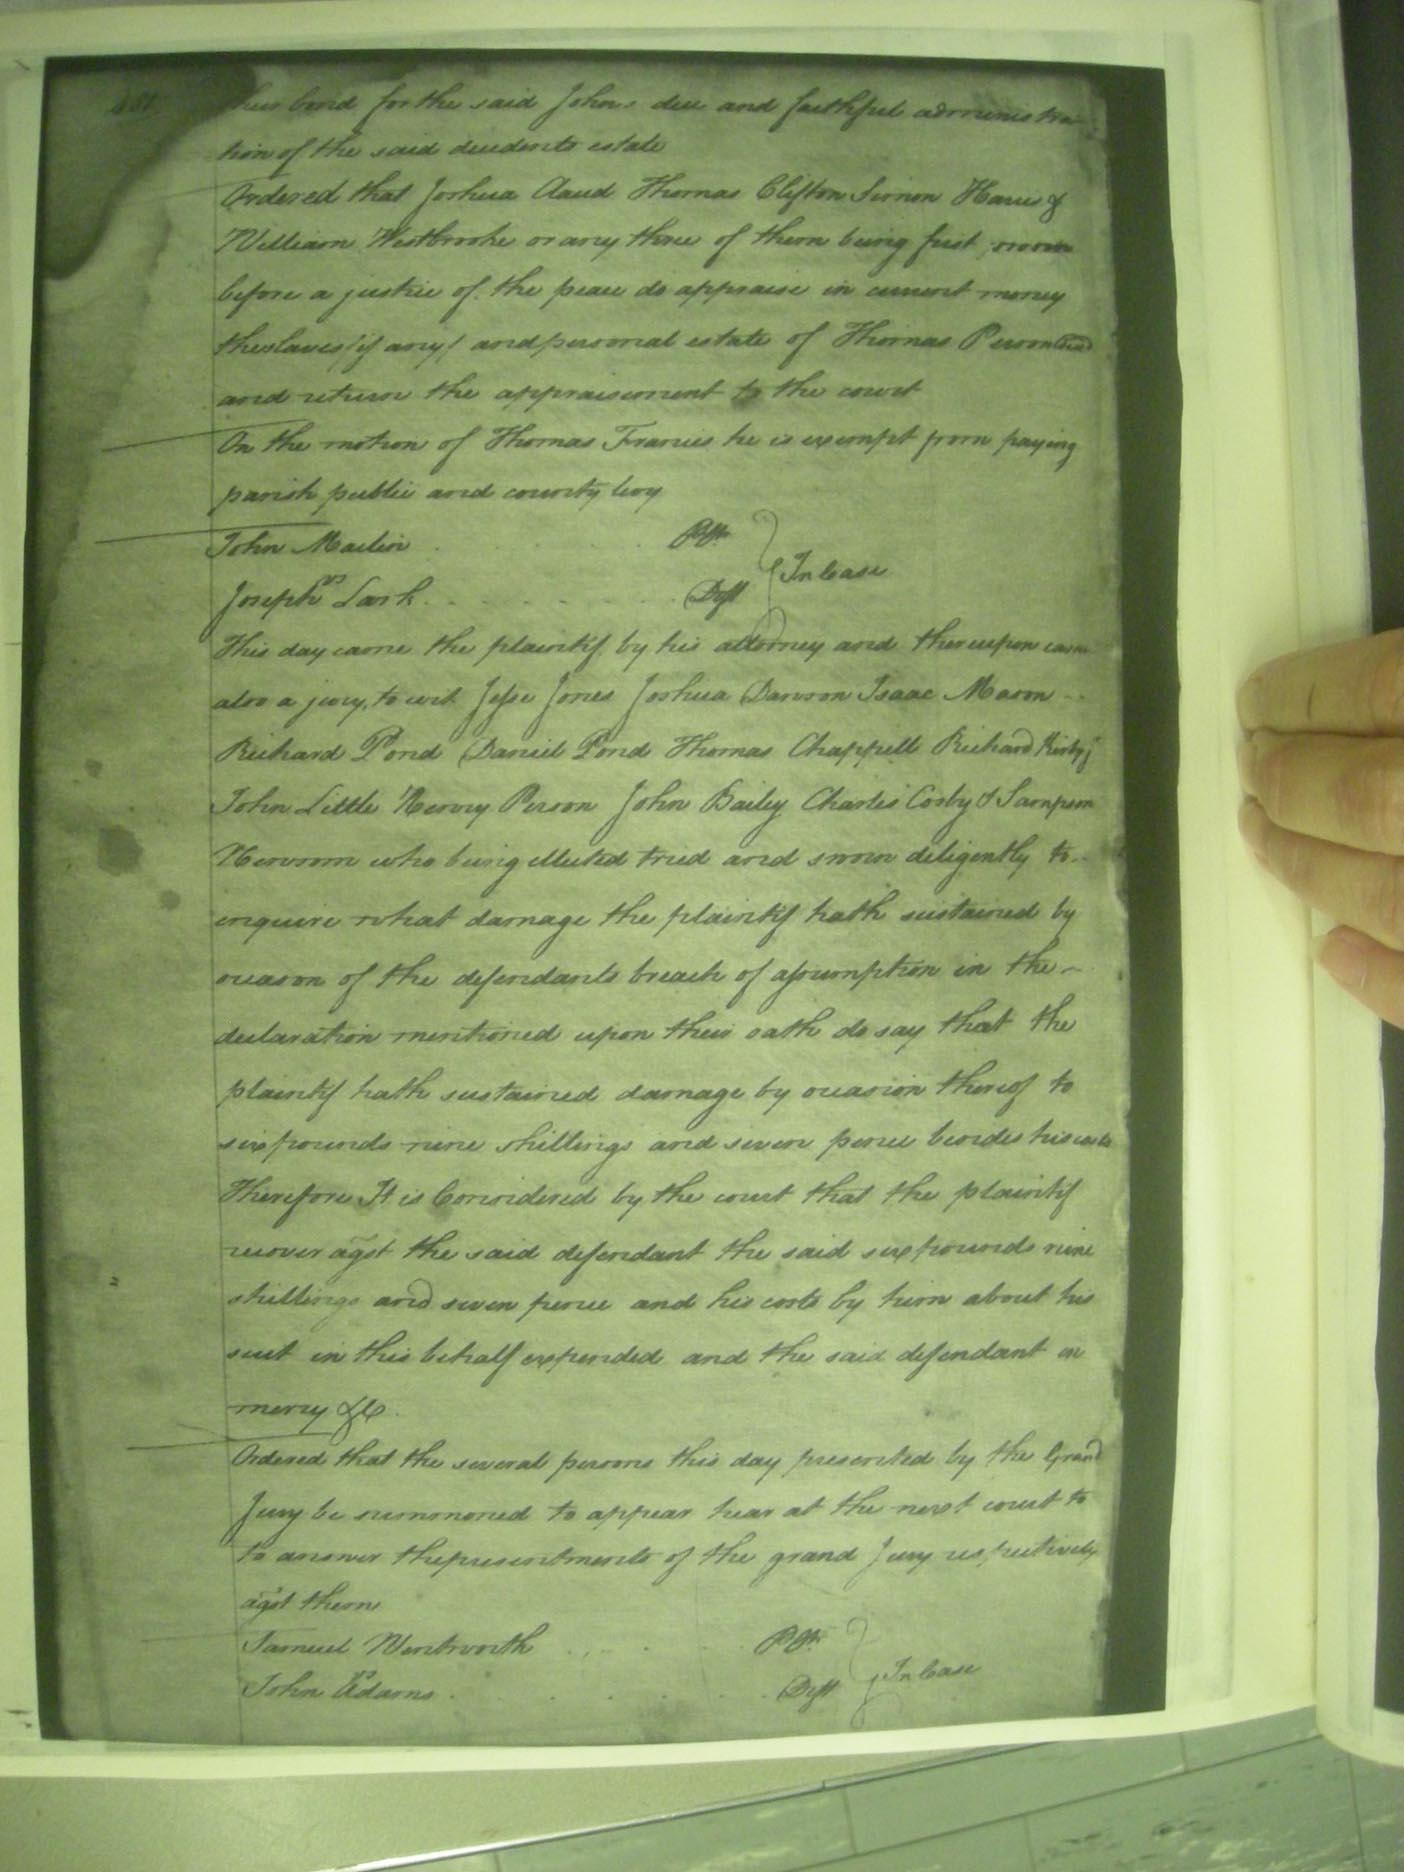 their bond for the said Johns due and faithful administra
tion of the said decedents estate
Ordered that Joshua Claud Thomas Clifton Simon Harris &
William Westbrooke or any three of them being first sworn
before a justice of the peace do appraise in current money
the slaves (if any) and personal estate of Thomas Person decd
and return the appraisement to the court
On the motion of Thomas Francis he is exempt from paying
parish public and county levy
John Maclin Pltf.
vs In Case
Joseph Lark Deft
This day came the plaintif by his attorney and thereupon came
also a jury, to wit Jesse Jones Joshua Dawson Isaac Mason
Richard Pond Daniel Pond Thomas Chappell Richard Kirby
John Little Henry Person John Bailey Charles Cosby & Sampson
Newsom who being elected tried and sworn diligently to
enquire what damage the plaintif hath sustained by
occason of the defendants breach of assumption in the
declaration mentioned upon their oath do say that the
plaintif hath sustained damage by occasion thereof to
six pounds nine shillings and seven pence besides his costs
Therefore It is Considered by the court that the plaintif
recover agst the said defendant the said six pounds nine
shillings and seven pence and his costs by him about his
suit in this behalf expended and the said defendant in
mercy &C.
Ordered that the several persons this day presented by the Grand
Jury be summoned to appear hear at the next court to
to answer the presentments of the grand Jury respectively
agst them
Samuel Wentworth Pltf.
vs In Case
John Adams Deft